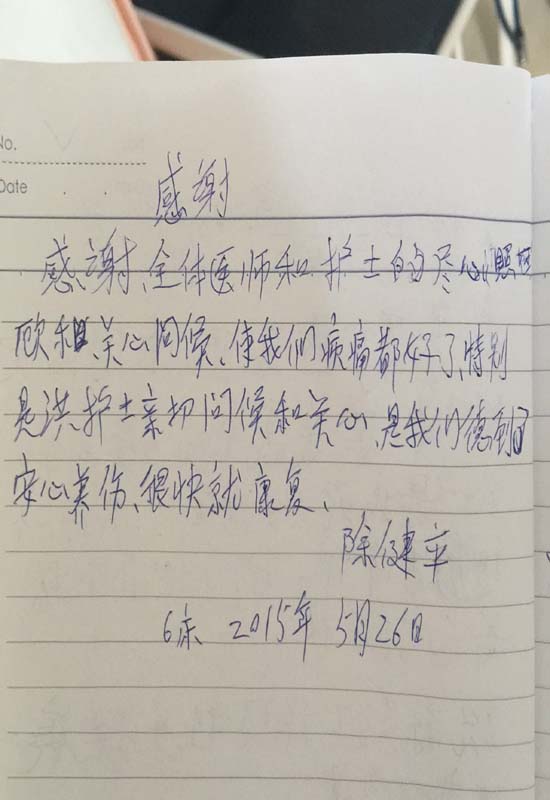 No.
Date
感谢
感谢、全体医师和护士的尽心照
欧和、关心问候、使我们病痛都好了、特别
是洪护士亲切问候和关心、是我们德到了
安心养伤、很快就康复、
除健平
6床 2015年 5月26日